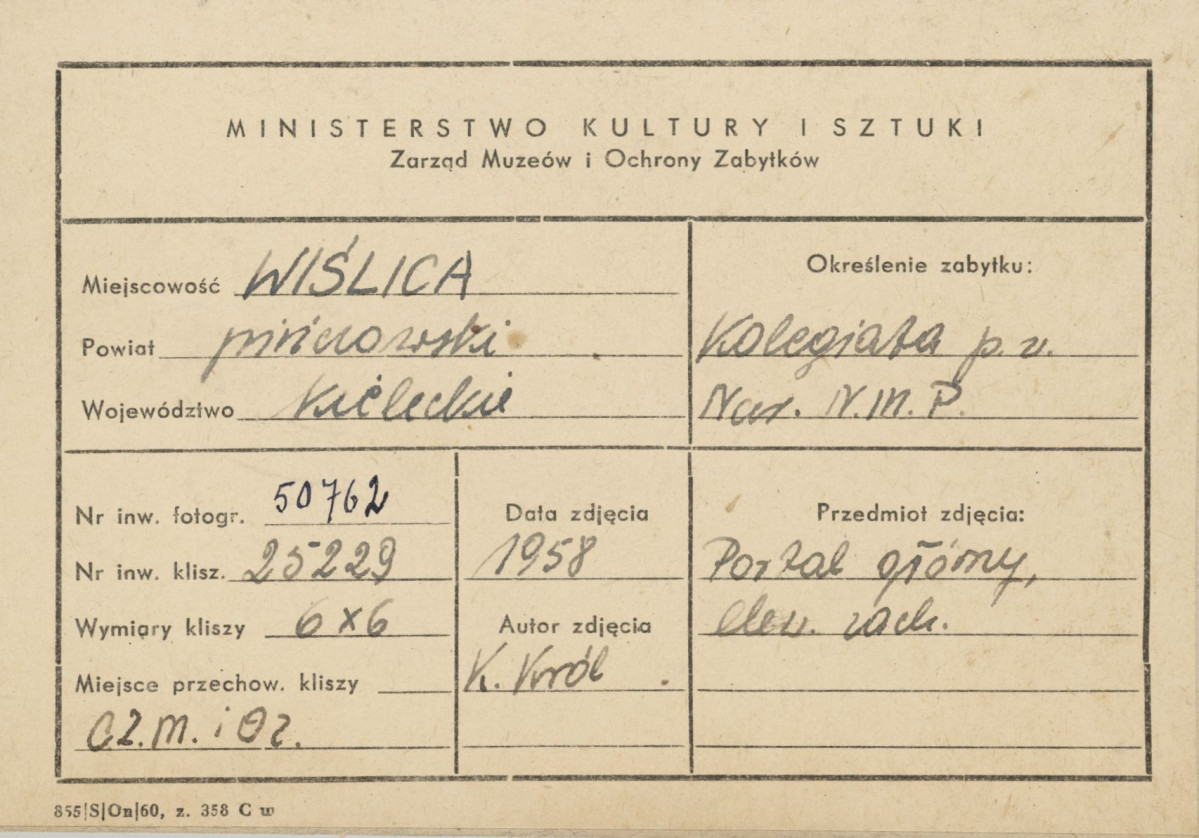 MINISTERSTWO KULTURY I SZTUKI
Zarząd Muzeów i Ochrony Zabytków
Miejscowość WIŚLICA
Powiat pińczowski
Województwo kieleckie
Określenie zabytku:
Kolegiata p.w.
Nar. N.M.P.
Nr inw. fotogr. 50762
Nr inw. klisz. 25229
Wymiary kliszy 6x6
Miejsce przechow. kliszy
OZ.M. i OZ.
Data zdjęcia
1958
Autor zdjęcia
K. Król
Przedmiot zdjęcia:
Portal główny,
elew. zach.
855|S|On|60, z. 358 C w